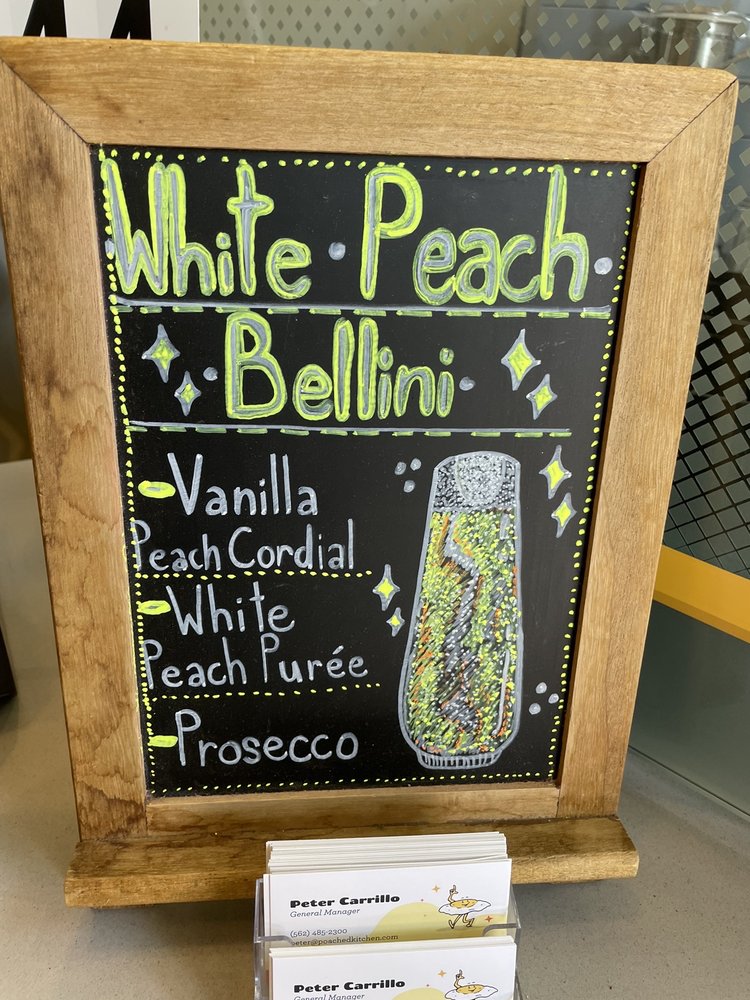 White Peach
Bellini
-Vanilla
Peach Cordial
-White
Peach Purée
-Prosecco
Peter Carrillo
General Manager
(562) 485-2300
peter@poachedkitchen.com
Peter Carrillo
General Manager